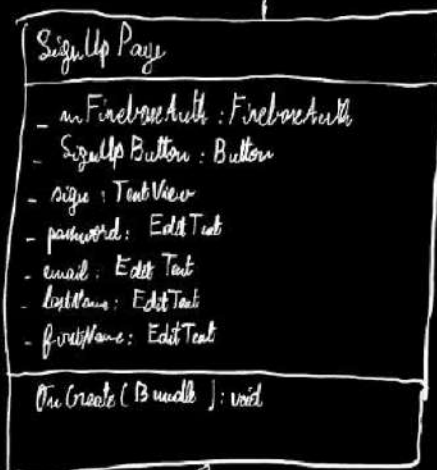 SignUp Page
- mFirebaseAuth : FirebaseAuth
- SignUpButton : Button
- sign : TextView
- password : EditText
- email : Edit Text
- lastName : EditText
- firstName : EditText
OnCreate ( Bundle ) : void